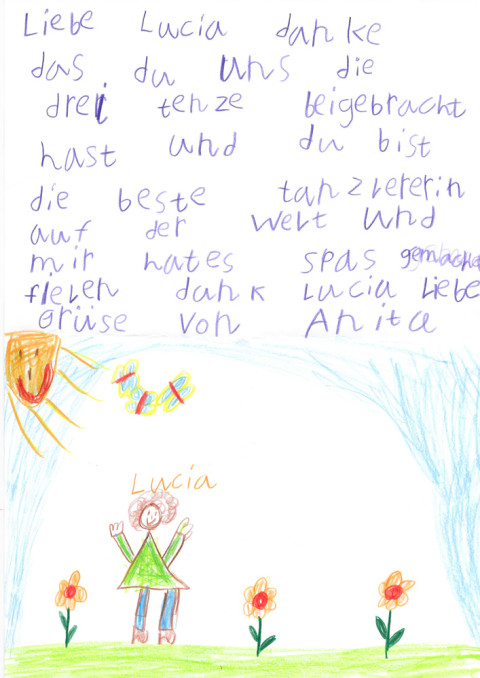 Liebe Lucia danke
das du uns die
drei tenze beigebracht
hast und du bist
die beste tanzlererin
auf der welt und
mir hates spas gemacht
fielen dank Lucia Liebe
Grüse von Anita
Lucia